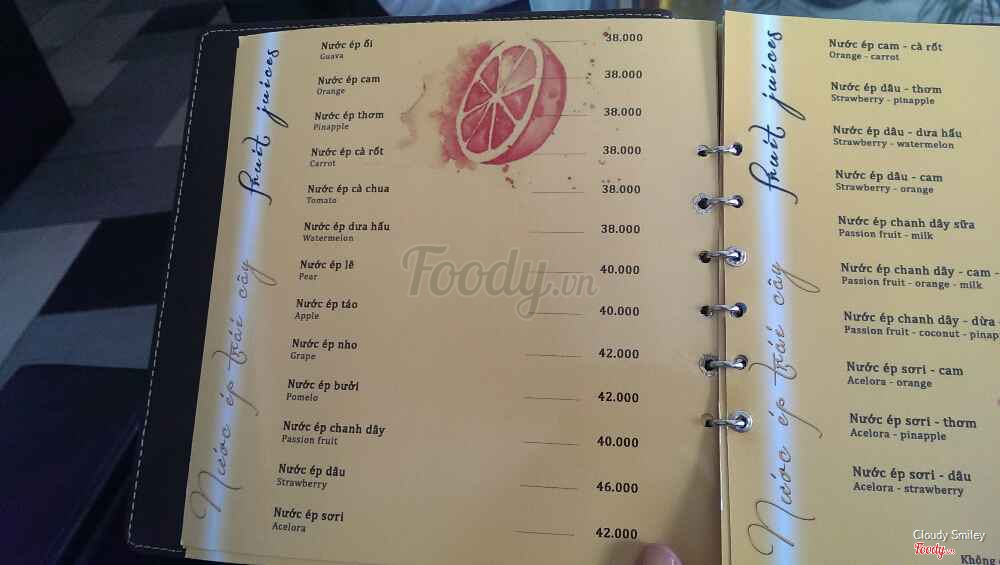 Nước ép trái cây fruit juices
Nước ép ổi 38.000
Guava
Nước ép cam 38.000
Orange
Nước ép thơm 38.000
Pinapple
Nước ép cà rốt 38.000
Carrot
Nước ép cà chua 38.000
Tomato
Nước ép dưa hấu 38.000
Watermelon
Nước ép lê 40.000
Pear
Nước ép táo 40.000
Apple
Nước ép nho 42.000
Grape
Nước ép bưởi 42.000
Pomelo
Nước ép chanh dây 40.000
Passion fruit
Nước ép dâu 46.000
Strawberry
Nước ép sơri 42.000
Acelora
Foody.vn
Nước ép trái cây fruit juices
Nước ép cam - cà rốt
Orange - carrot
Nước ép dâu - thơm
Strawberry - pinapple
Nước ép dâu - dưa hấu
Strawberry - watermelon
Nước ép dâu - cam
Strawberry - orange
Nước ép chanh dây sữa
Passion fruit - milk
Nước ép chanh dây - cam -
Passion fruit - orange - milk
Nước ép chanh dây - dừa -
Passion fruit - coconut - pinap
Nước ép sơri - cam
Acelora - orange
Nước ép sơri - thơm
Acelora - pinapple
Nước ép sơri - dâu
Acelora - strawberry
Không
Cloudy Smiley
Foody.vn